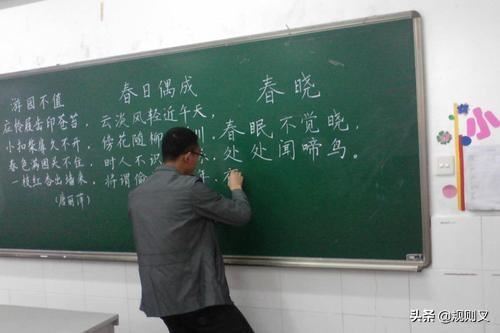 游园不值
应怜屐齿印苍苔，
小扣柴扉久不开，
春色满园关不住，
一枝红杏出墙来，
春日偶成
云淡风轻近午天，
傍花随柳川，
时人不识
将谓偷年，
春晓
春眠不觉晓，
处处闻啼鸟。
小
头条 @规则又